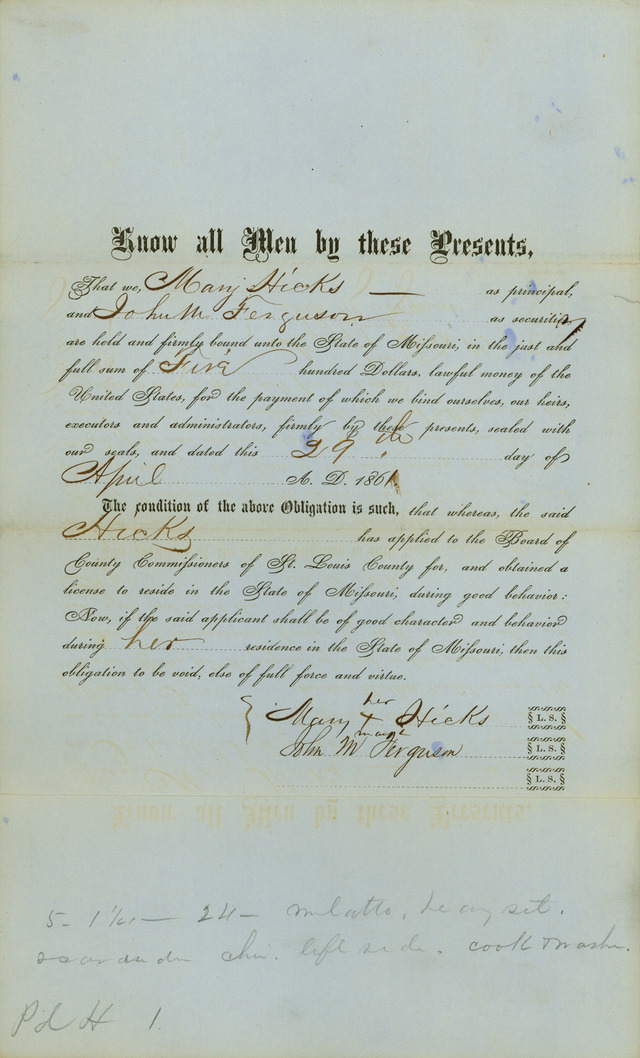 Know all Men by these Presents,
That we, Mary Hicks — as principal,
and John M Ferguson as securities,
are held and firmly bound unto the State of Missouri, in the just and
full sum of Five hundred Dollars, lawful money of the
United States, for the payment of which we bind ourselves, our heirs,
executors and administrators, firmly by these presents, sealed with
our seals, and dated this 29th day of
April A. D. 1861
The condition of the above Obligation is such, that whereas, the said
Hicks has applied to the Board of
County Commissioners of St. Louis County for, and obtained a
license to reside in the State of Missouri, during good behavior:
Now, if the said applicant shall be of good character and behavior
during her residence in the State of Missouri, then this
obligation to be void, else of full force and virtue.
her
Mary X Hicks L. S.
mark
John M Ferguson L. S.
L. S.
5- 24- mulatto, heavy set.
scar under chin. left side. cook & wash.
Pd H 1